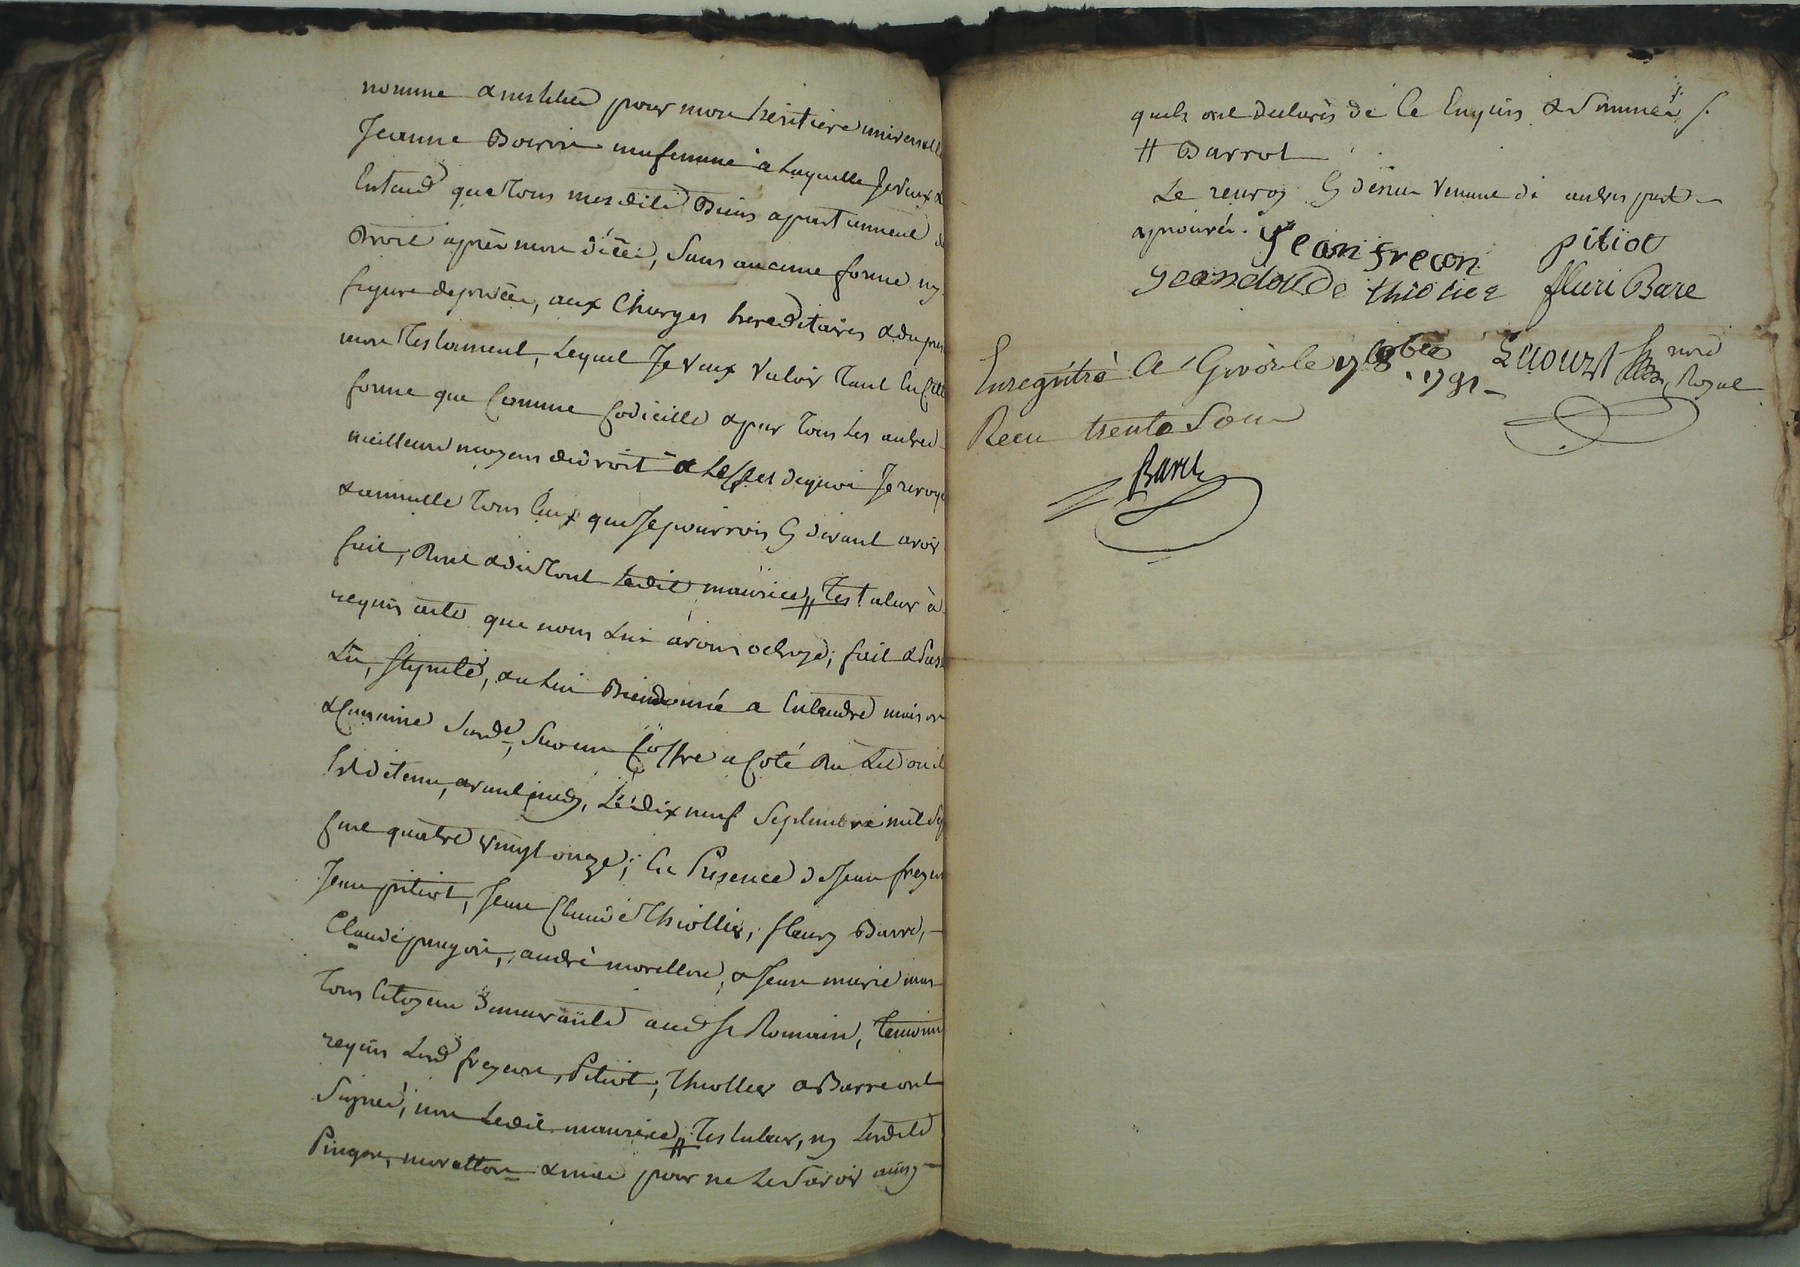 nomme & institue pour mon héritiere universelle
Jeanne Boiron ma femme a laquelle Je veux &
Entend que tous mesdits Biens apartiennent de
Droit après mon décè, Sans aucune forme ny
figure de procès, aux Charges hereditaires & du pres
mon testament, Lequel Je veux valoir tant En cette
forme que Comme Codicille & par tous Les autres
meilleurs moyens de droit a Leffet de quoi Je revoque
& annulle tous Ceux que Je pourrois Cy devant avoir
fait, Dont & du tout Ledit maurice // Testateur à
requis acte que nous Lui avons octroyé; fait &
Lu, au Lui Bien donné a Entendre maison
& Cuisine Sur un Coffre a Coté du Lit ou il
Est détenu, avant midy, Le dix neuf Septembre mil Sep
Cent quatre vingt onze; En Presence de Jean freçon
Jean pitiot, Jean Claude Thiollier, fleury Barre,
Claude pingon, andré morellon, & Jean marie mas
tous Citoyens audt St Romain, temoins
requis Lesd freçon, Pitiot, Thiollier & Barre ont
Signé, non Ledit maurice // Testateur, ny Lesdits
Pingon, morellon & mas pour ne Le Savoir ainsy
quils ont declarés de Ce Enquis & Sommés /.
// Barrot
Le renvoy Cy dessus & de autre part
aprouvés. Jean frecon pitiot
Jean claude thiolier fleuri Bare
Enregistré A Givors le 1791 nore Royal
Recu trente Sous
Baret